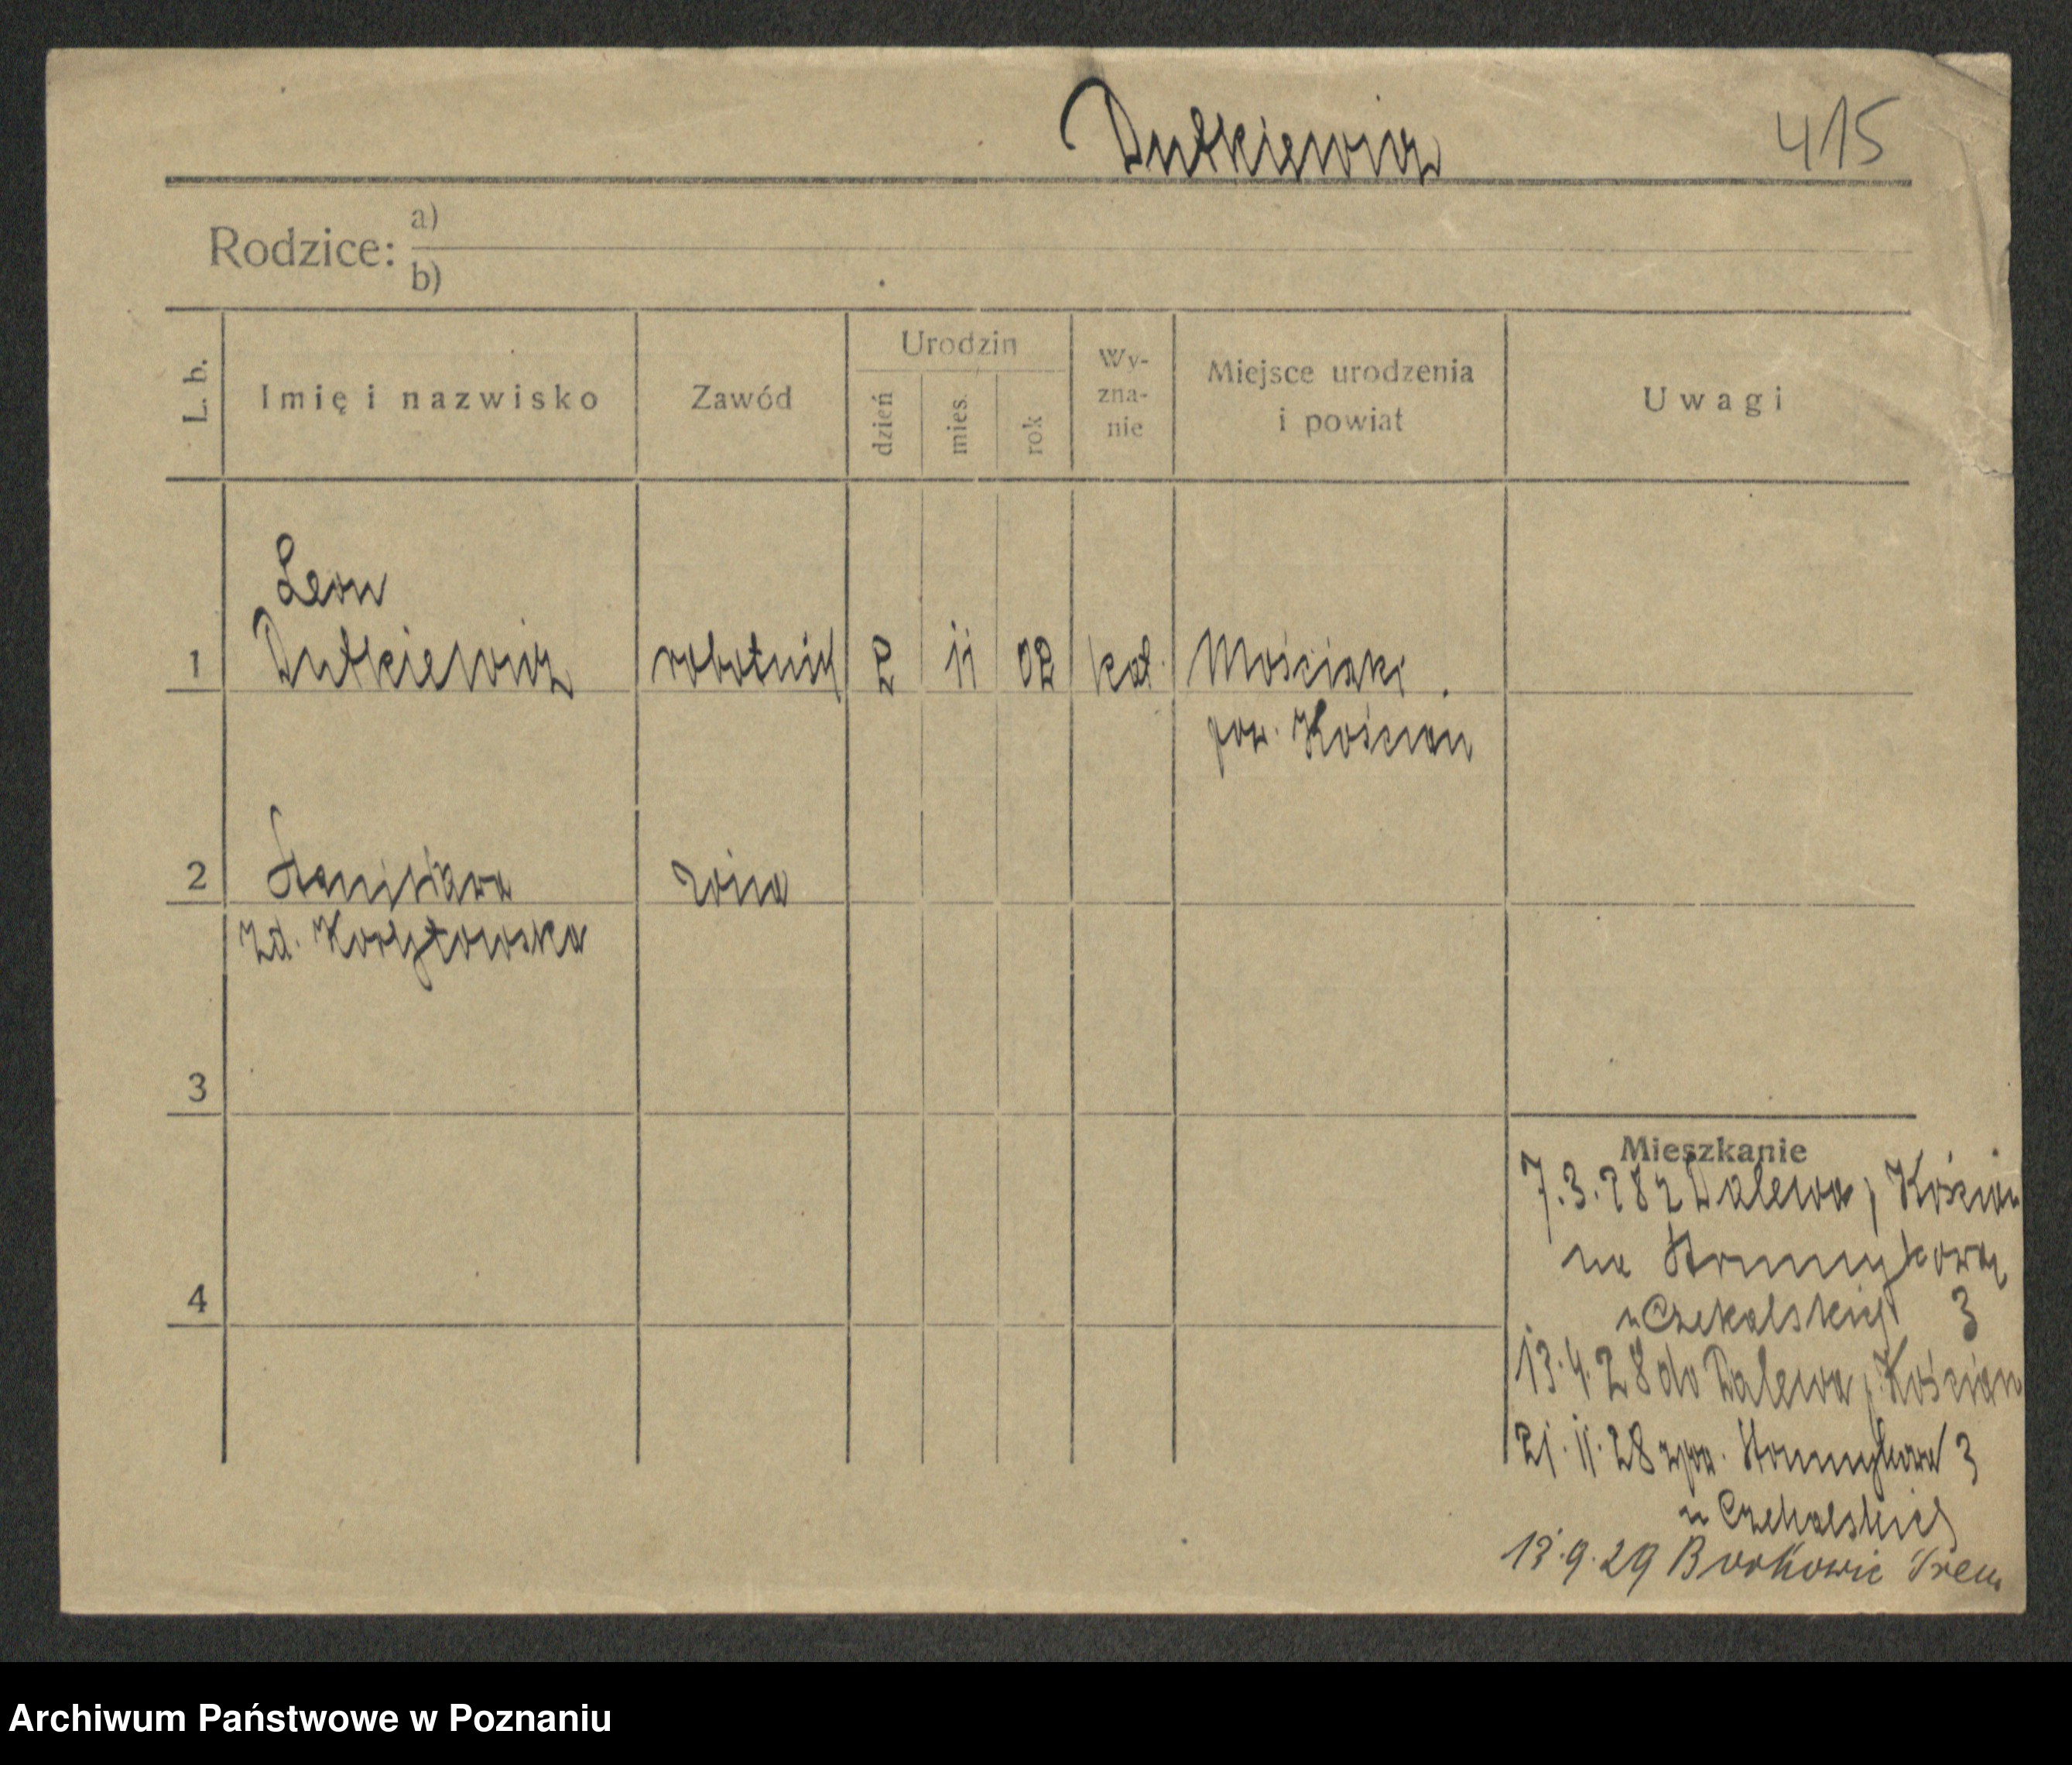 Dutkiewicz 415
Rodzice: a)
b)
L. b. Imię i nazwisko Zawód Urodzin dzień mies. rok Wy-zna-nie Miejsce urodzenia i powiat Uwagi
Leon
1 Dutkiewicz robotnik 2 11 02 kat. Mościszki
pow. Kościan
2 Stanisława żona
zd.
3
4
Mieszkanie
7.3.28 z Dalewa, Kościan
na Strumykową
u Czekalskich 3
13.4.28 do Dalewa p. Kościan
21.11.28 Strumykowa 3
u Czekalskich
13.9.29 Borkowic Śrem
Archiwum Państwowe w Poznaniu